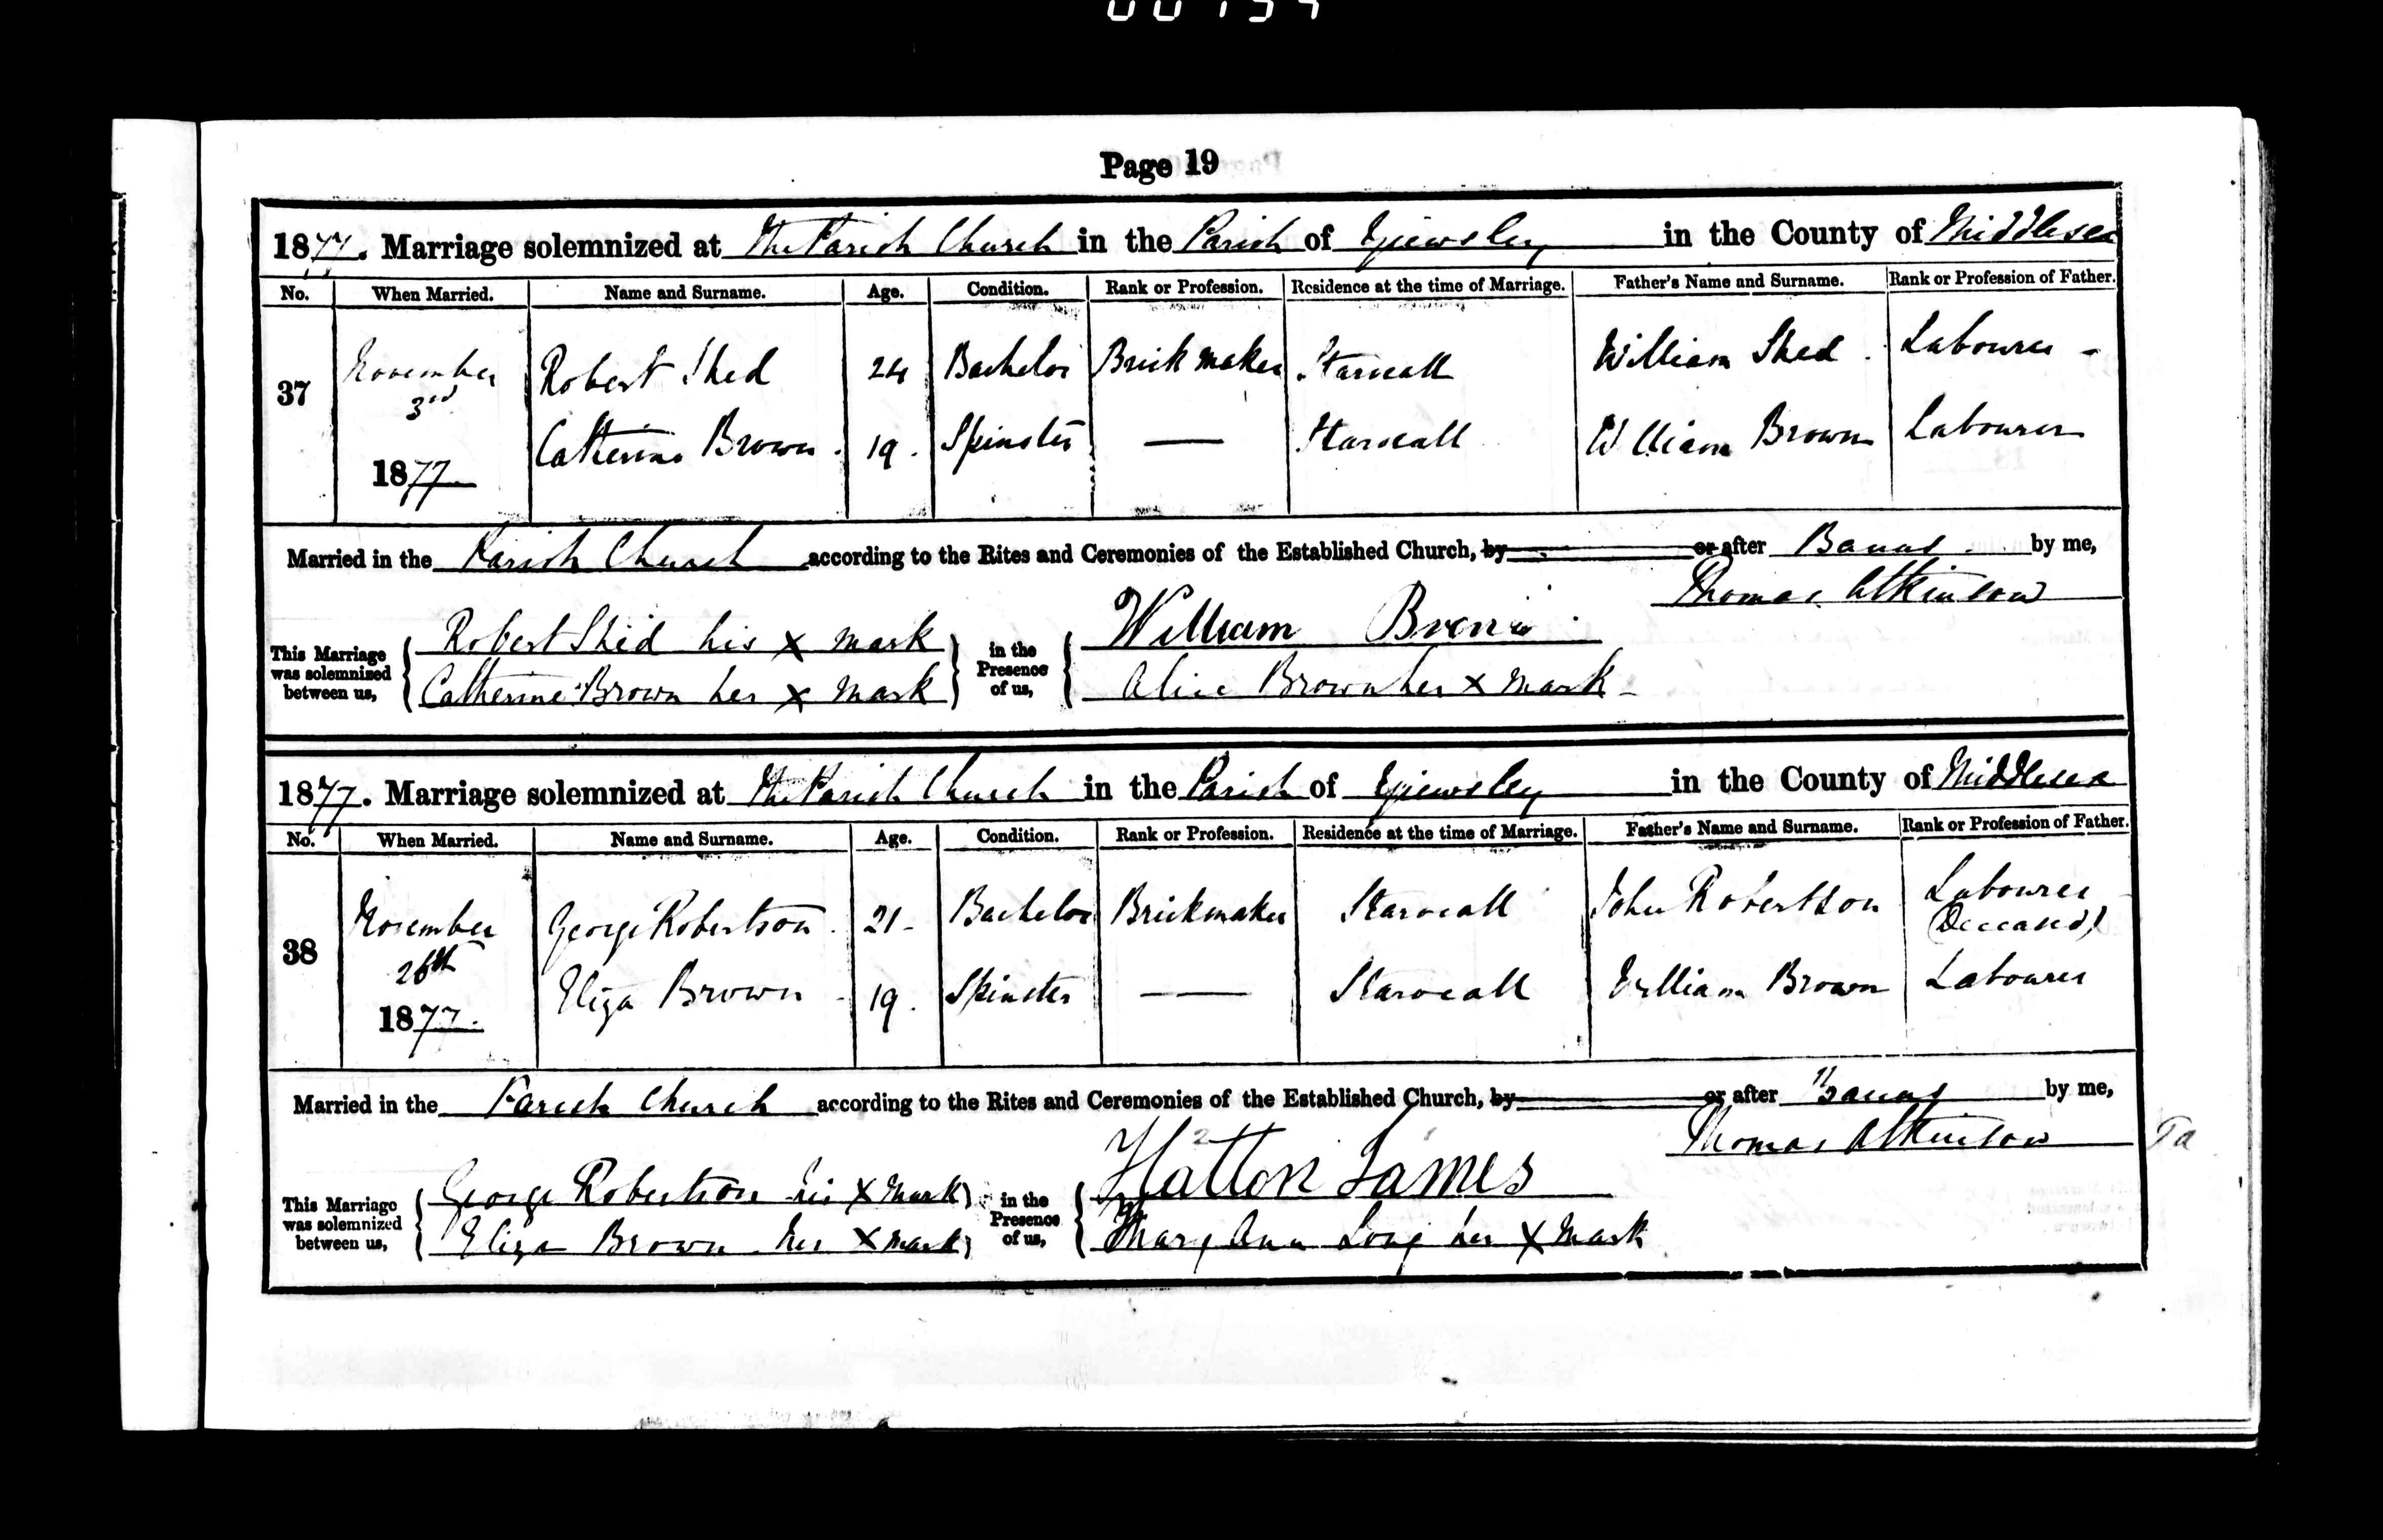 Page 19
1877. Marriage solemnized at The Parish Church in the Parish of Yiewsley in the County of Middlesex
No. When Married. Name and Surname. Age. Condition. Rank or Profession. Residence at the time of Marriage. Father's Name and Surname. Rank or Profession of Father.
37 November 3rd 1877 Robert Shed 24 Bachelor Brickmaker Starveall William Shed. Labourer -
Catherine Brown. 19. Spinster — Starveall William Brown Labourer
Married in the Parish Church according to the Rites and Ceremonies of the Established Church, by or after Banns by me,
Thomas Atkinson
This Marriage was solemnized between us, Robert Shed his X mark in the Presence of us, William Brown
Catherine Brown her X mark Alice Brown her X mark
1877. Marriage solemnized at The Parish Church in the Parish of Yiewsley in the County of Middlesex
No. When Married. Name and Surname. Age. Condition. Rank or Profession. Residence at the time of Marriage. Father's Name and Surname. Rank or Profession of Father.
38 November 26th 1877. George Robertson. 21- Bachelor Brickmaker Starveall John Robertson Labourer (Deceased)
Eliza Brown - 19. Spinster — Starveall William Brown Labourer
Married in the Parish Church according to the Rites and Ceremonies of the Established Church, by or after Banns by me,
Thomas Atkinson
This Marriage was solemnized between us, George Robertson his X mark in the Presence of us, Hatton James
Eliza Brown her X mark Mary Ann Long her X mark